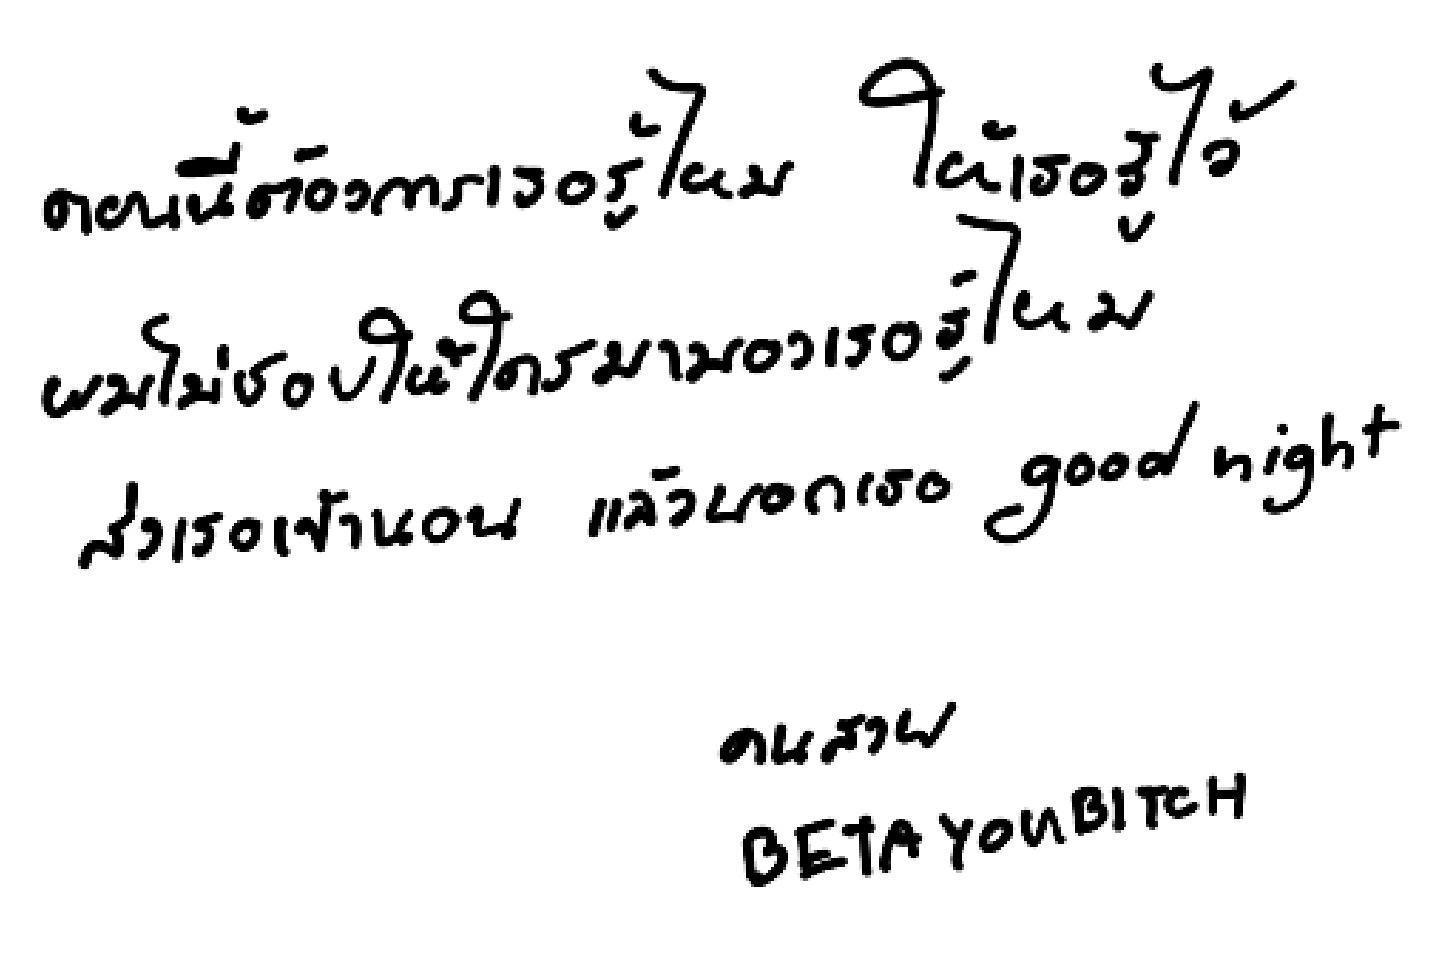 ตอนนี้ต้องการเธอรู้ไหม ให้เธอรู้ไว้
ผมไม่ชอบให้ใครมามองเธอรู้ไหม
ส่งเธอเข้านอน แล้วบอกเธอ good night
คนสวย
BETA YOUBITCH